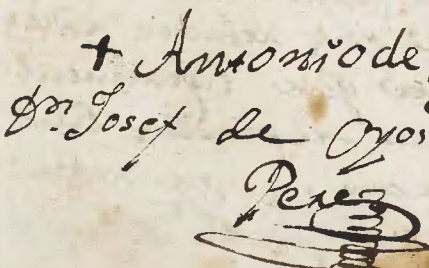 + Antonio de
Dn. Josef de Oyos
Perez